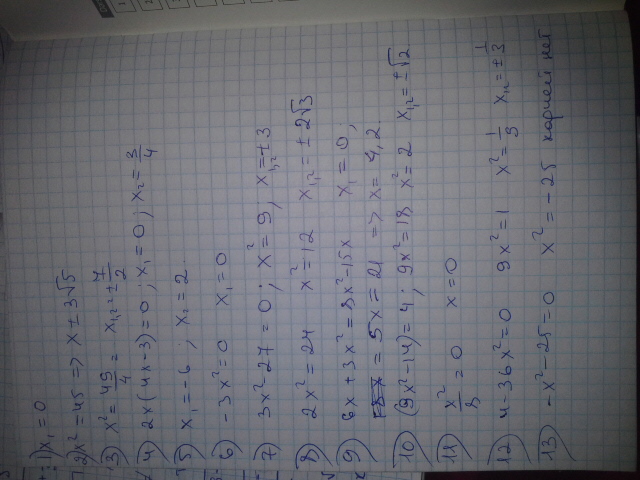 1) x₁ = 0
2) x² = 45 => x ± 3√5
3) x² = 49/4 = x₁,₂ = ± 7/2
4) 2x(4x-3) = 0; x₁ = 0; x₂ = 3/4
5) x₁ = -6; x₂ = 2.
6) -3x² = 0 x₁ = 0
7) 3x² - 27 = 0; x² = 9; x₁,₂ = ± 3
8) 2x² = 24 x² = 12 x₁,₂ = ± 2√3
9) 6x + 3x² = 3x² - 15x x₁ = 0,
= 5x = 21 => x = 4,2.
10) (9x² - 14) = 4; 9x² = 18 x² = 2 x₁,₂ = ± √2
11) x²/8 = 0 x = 0
12) 4 - 36x² = 0 9x² = 1 x² = 1/9 x₁,₂ = ± 1/3
13) -x² - 25 = 0 x² = -25 корней нет